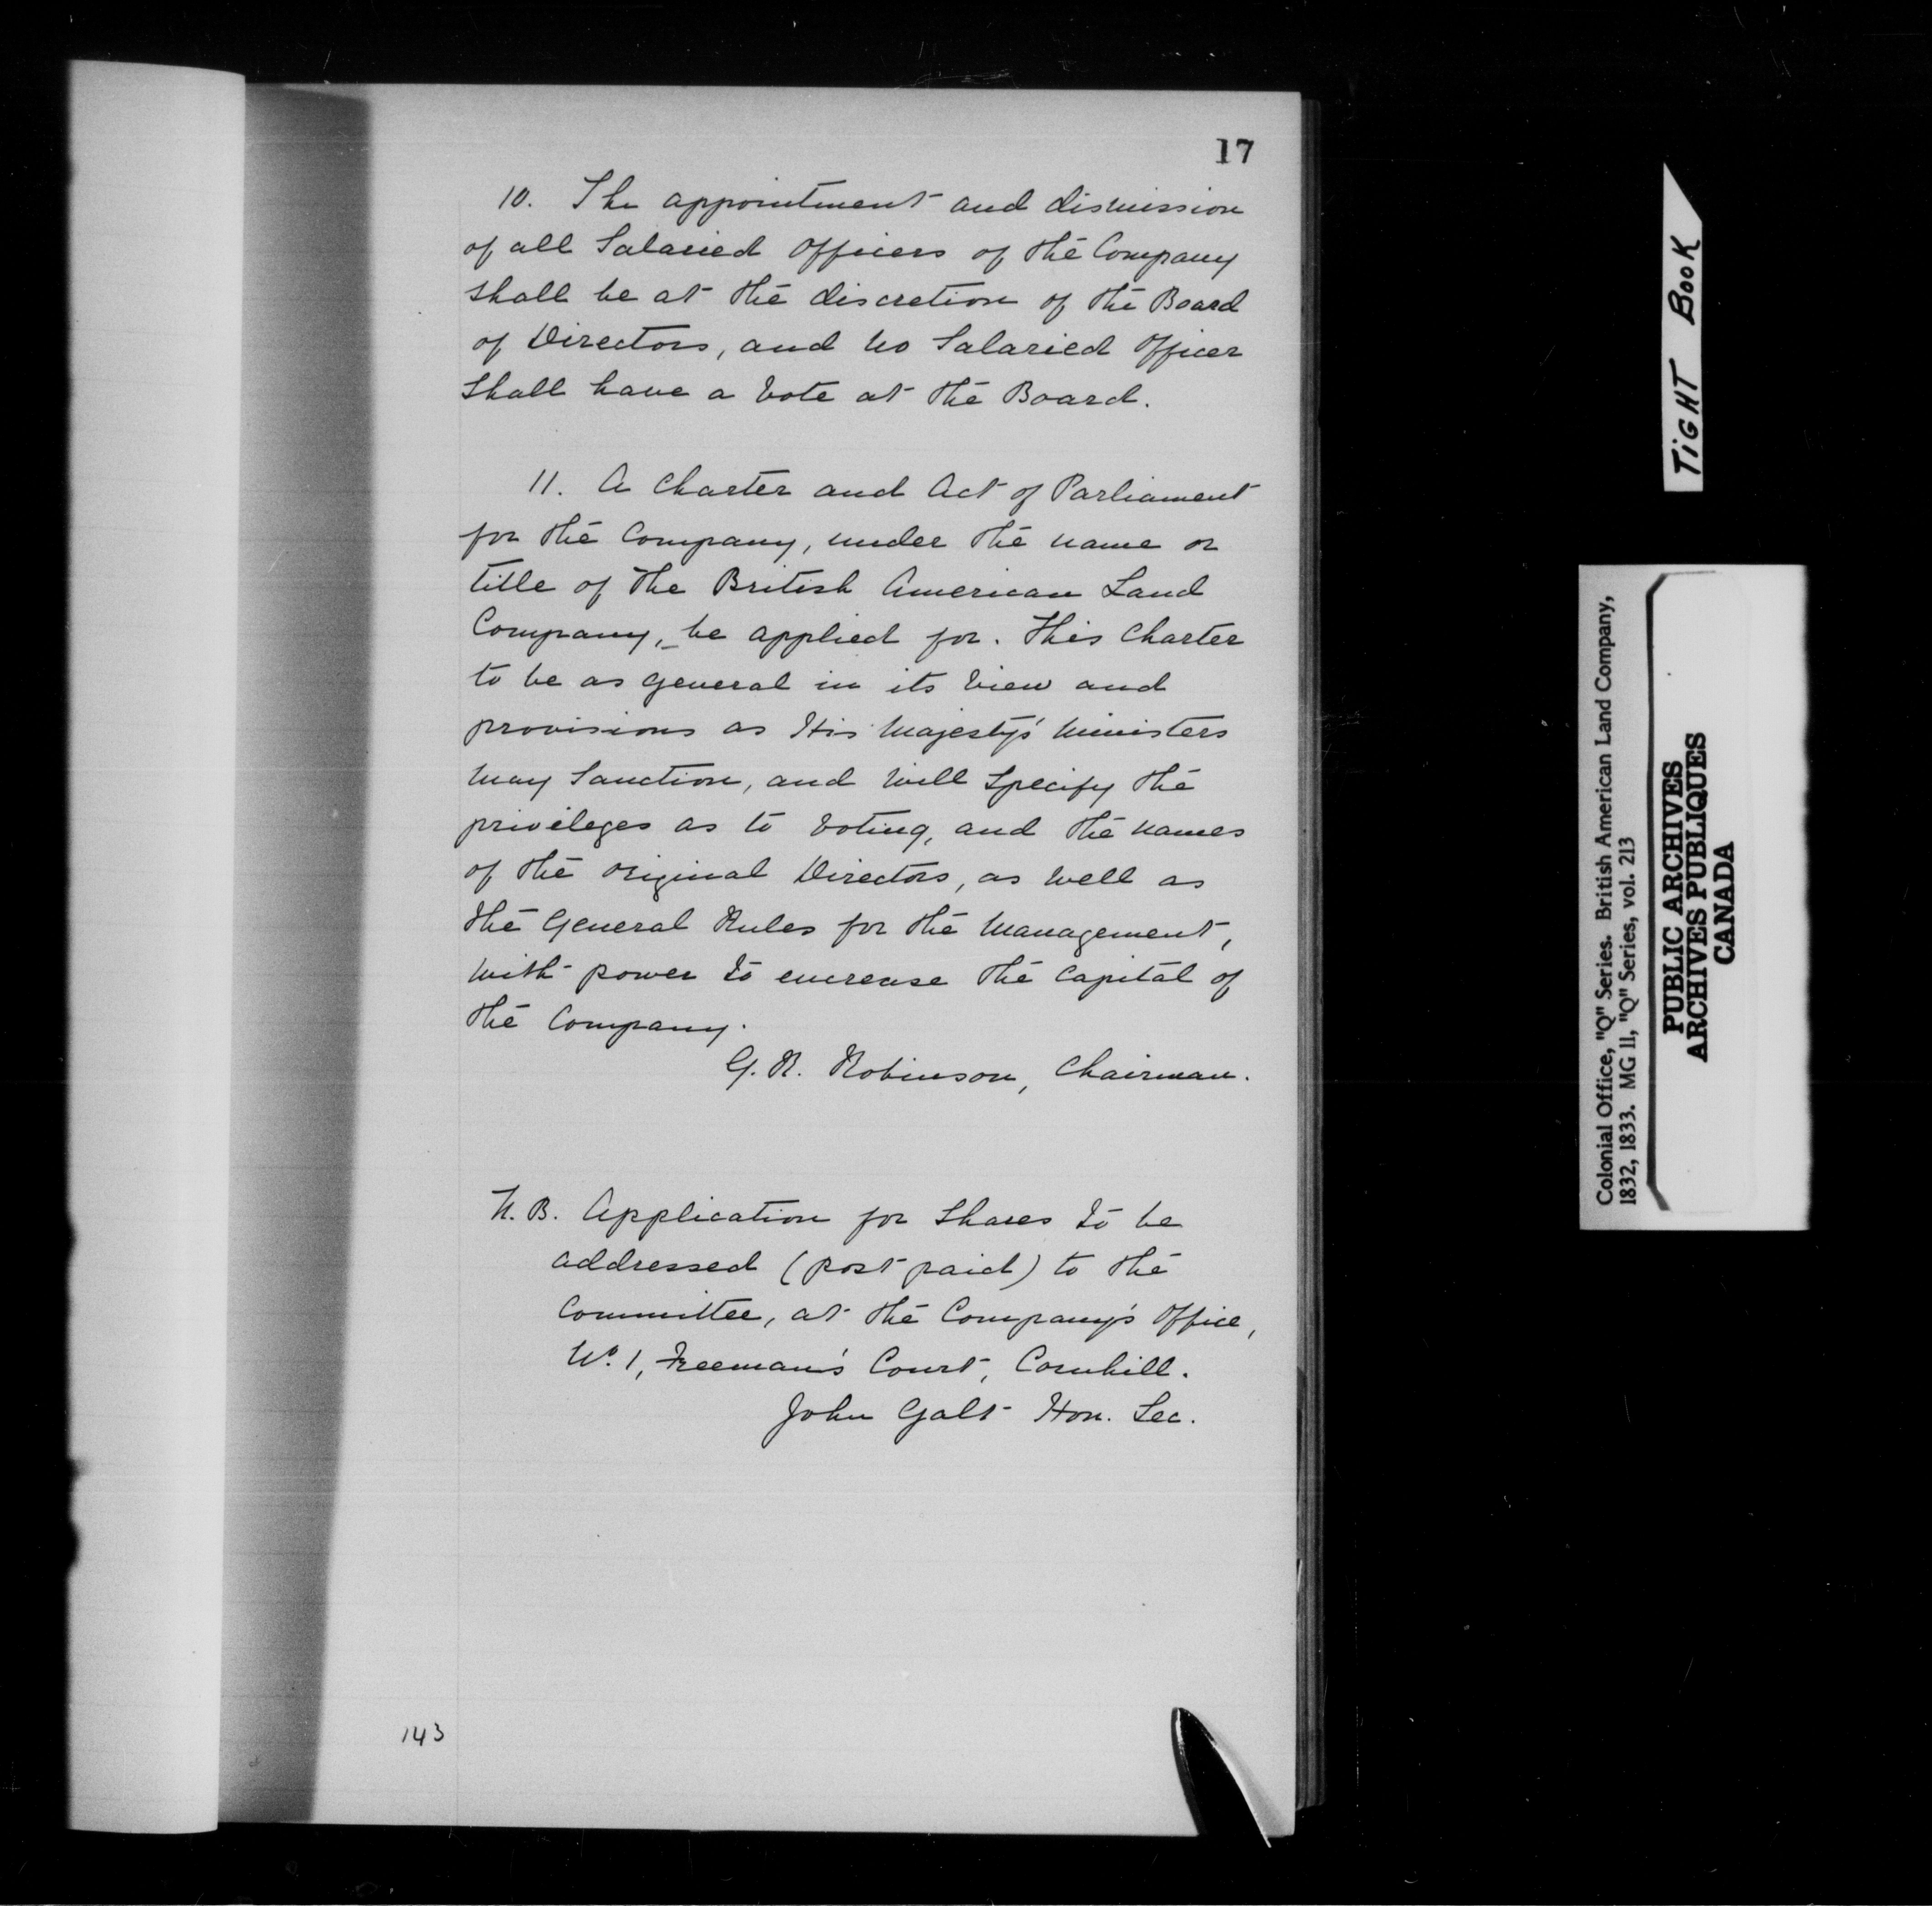 17
10. The appointment and dismission
of all Salaried Officers of the Company
shall be at the discretion of the Board
of Directors, and no Salaried Officer
shall have a vote at the Board.
11. A Charter and Act of Parliament
for the Company, under the name or
title of The British American Land
Company, be applied for. This Charter
to be as general in its view and
provisions as His Majesty's Ministers
may sanction, and will specify the
privileges as to voting, and the names
of the original Directors, as well as
the General Rules for the Management,
with power to encrease the Capital of
the Company.
G. R. Robinson, Chairman.
N. B. Application for Shares to be
addressed (post paid) to the
Committee, at the Company's Office,
No. 1, Freeman's Court, Cornhill.
John Galt Hon. Sec.
143
TIGHT BOOK
Colonial Office, "Q" Series. British American Land Company,
1832, 1833. MG 11, "Q" Series, vol. 213
PUBLIC ARCHIVES
ARCHIVES PUBLIQUES
CANADA